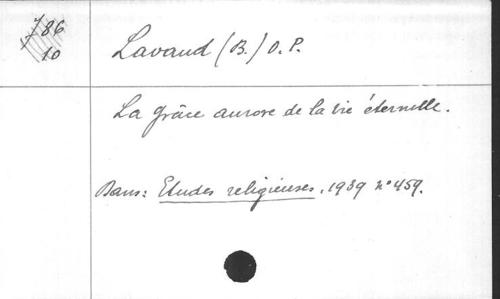 786
10
Lavaud (B.) O.P.
La grâce aurore de la vie éternelle.
Dans: Etudes religieuses, 1939 n° 459.